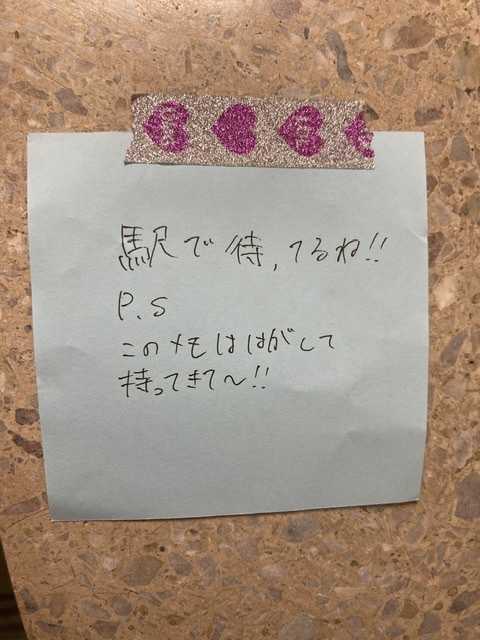 駅で待ってるね!!
P.S
このメモははがして
持ってきて〜!!